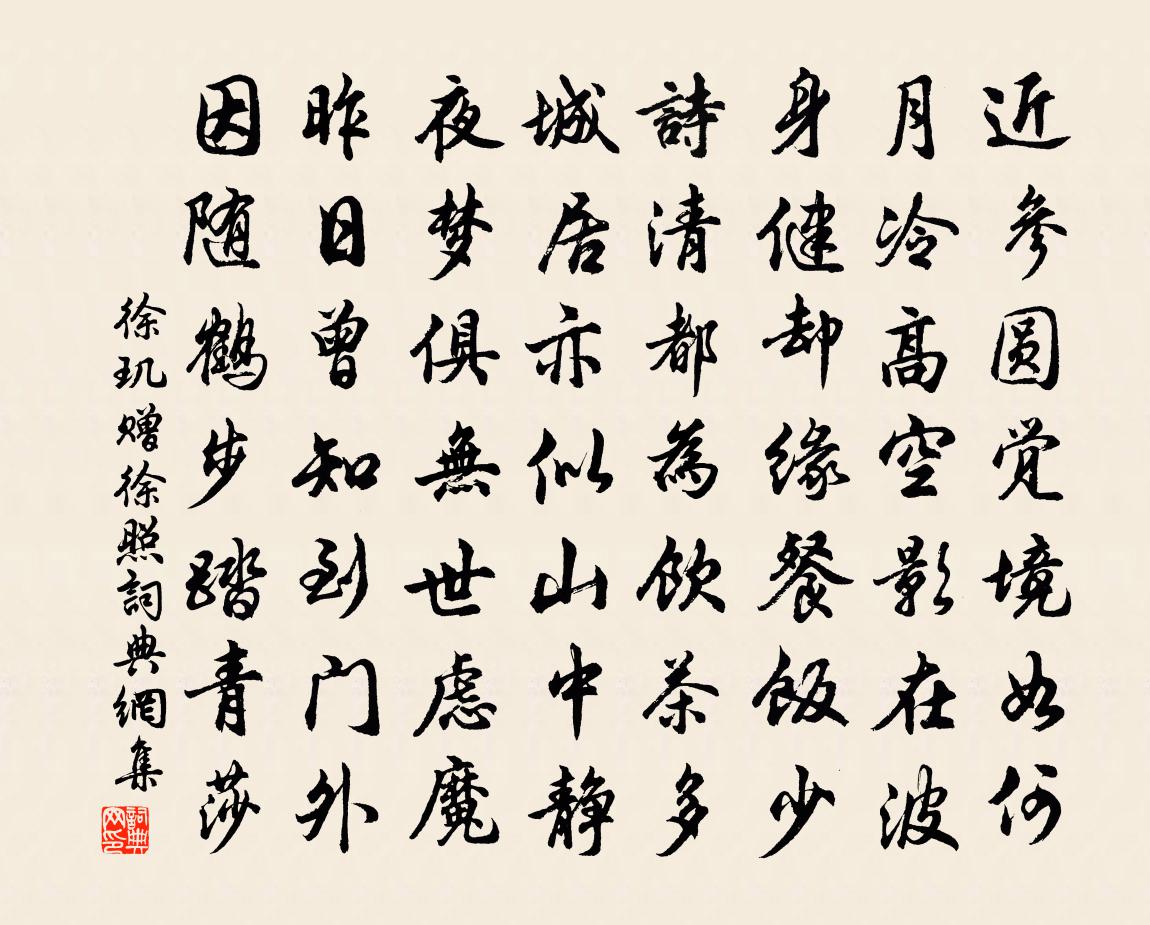 近參圆觉境如何
月冷高空影在波
身健却缘餐饭少
詩清都為飲茶多
城居亦似山中静
夜梦俱無世慮魔
昨日曾知到门外
因随鶴步踏青莎
徐玑赠徐照詞典網集
詞典网印